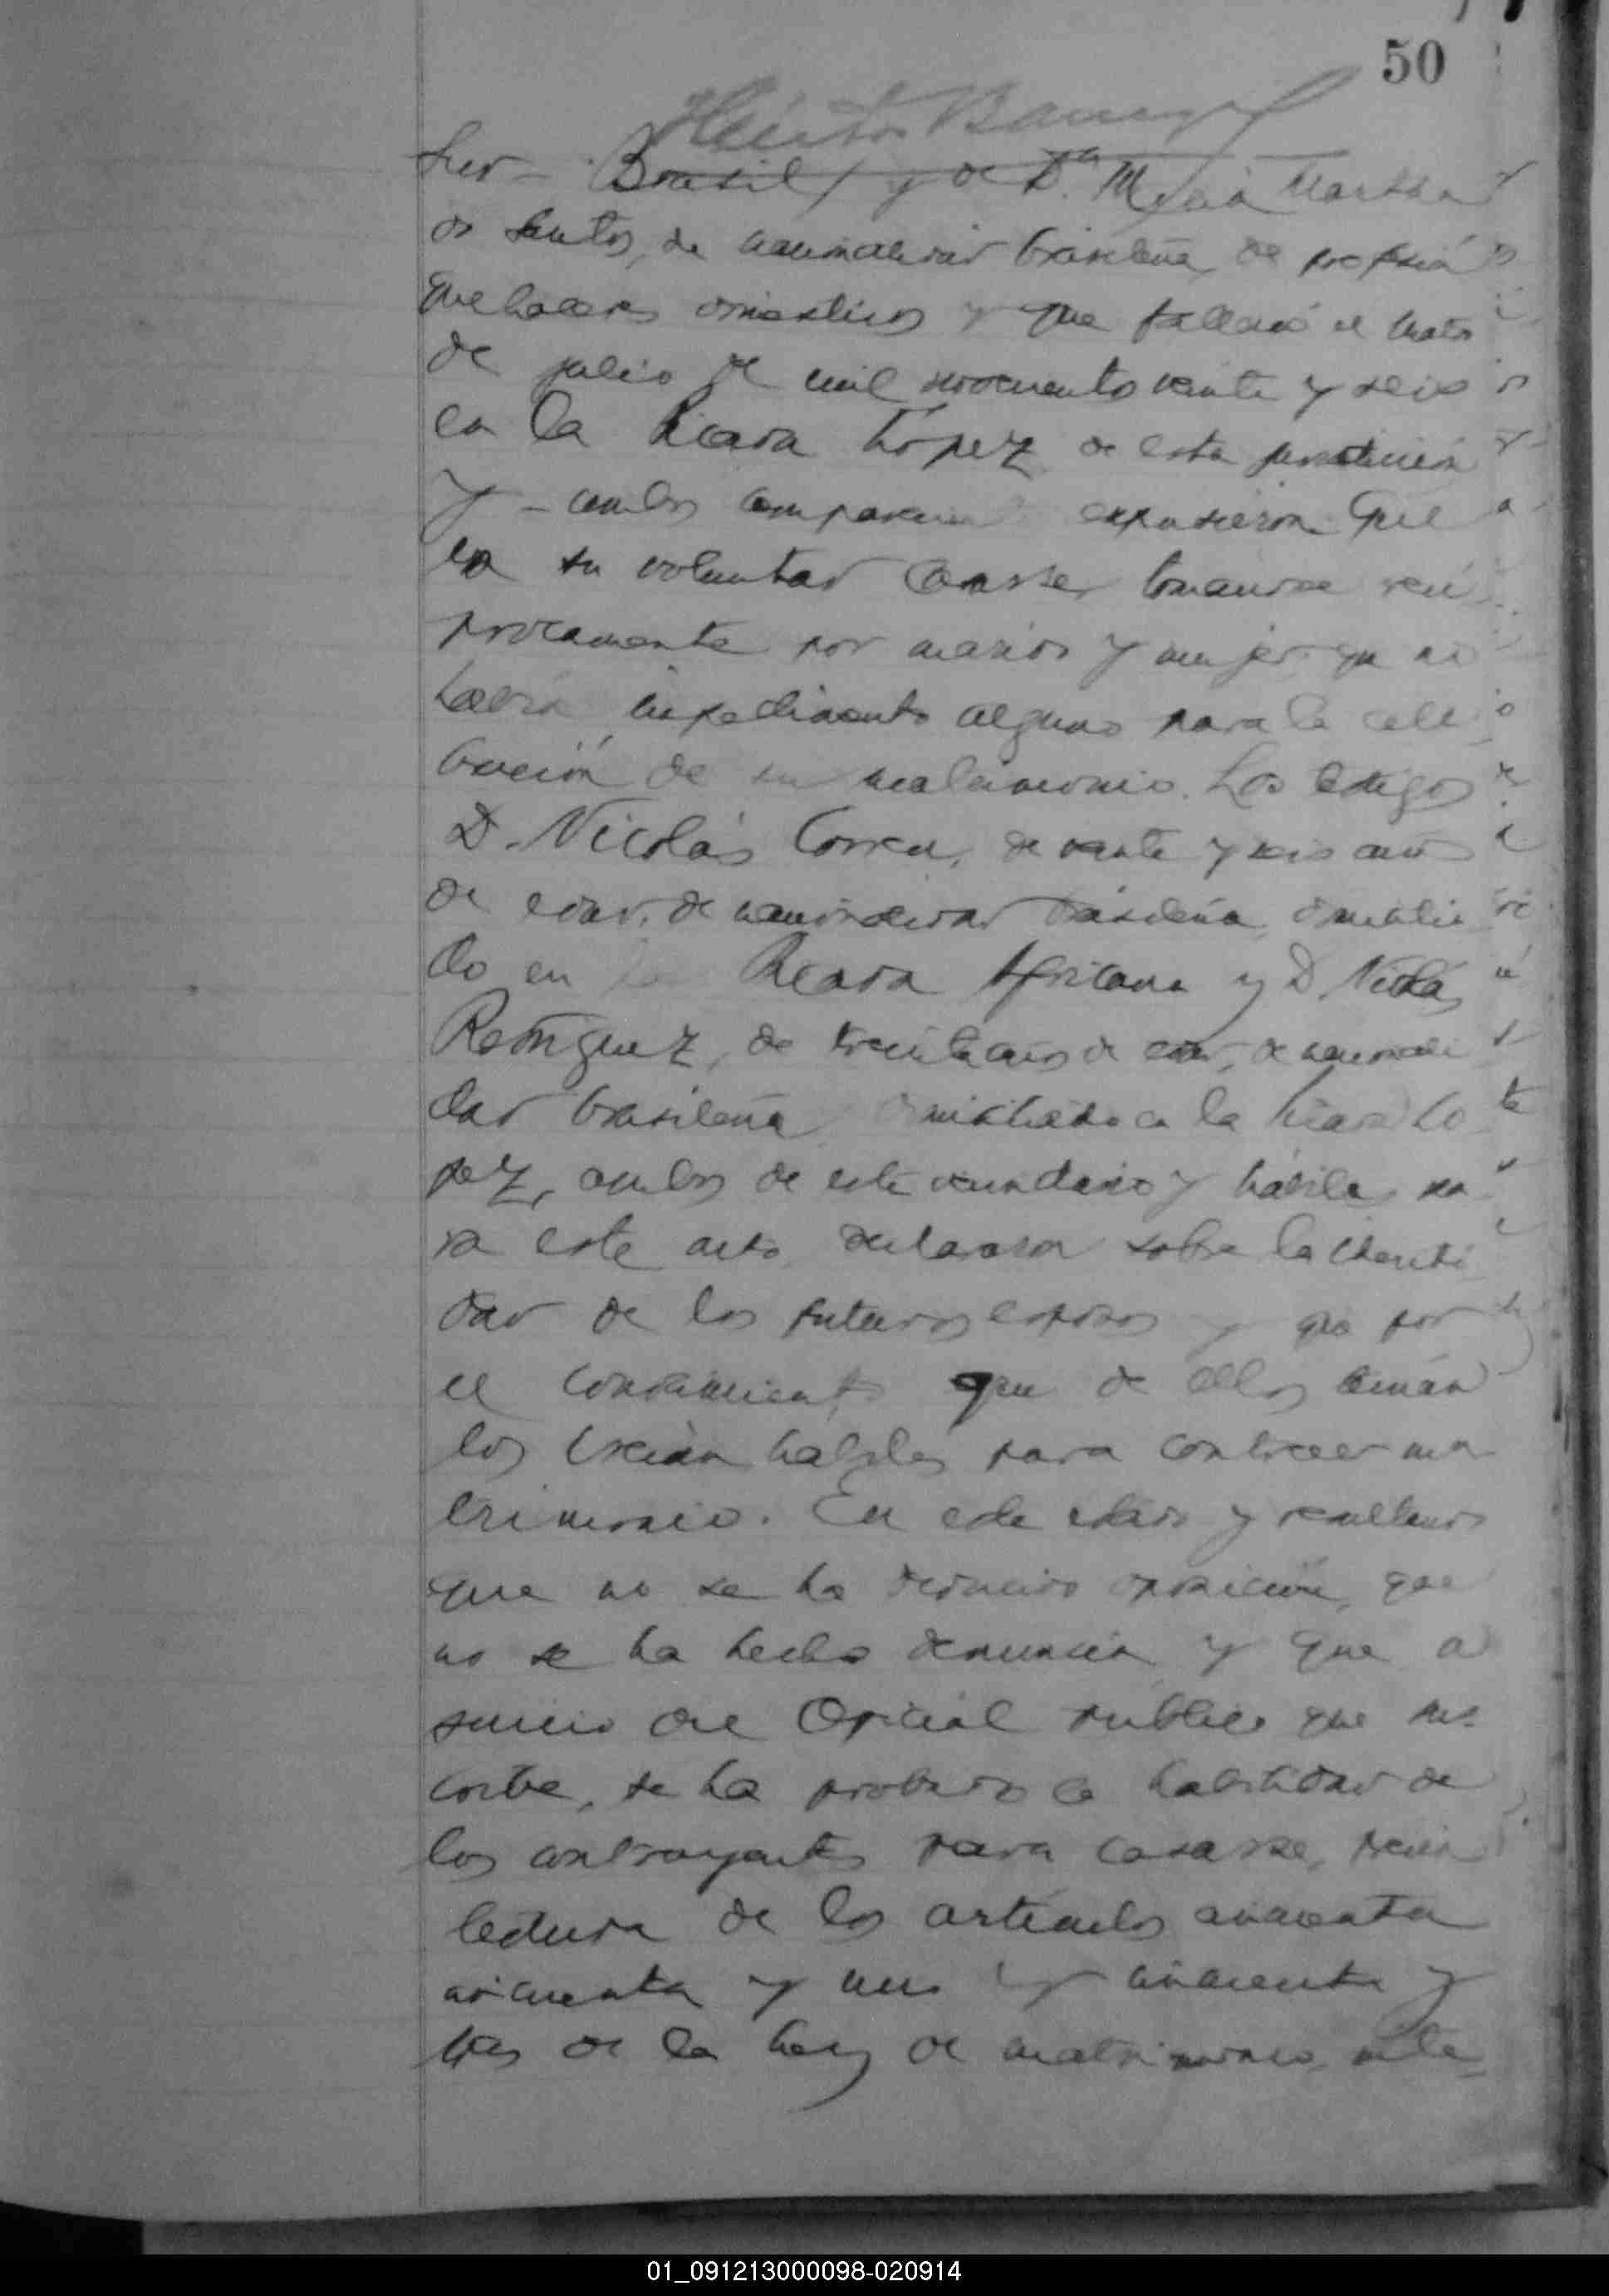 50
Sur - Brasil / y de Dª. María Martha
de nacionalidad brasileña, de profesión
quehaceres domésticos y que falleció el
de julio de mil novecientos veinte y seis
en la Picada López de esta jurisdicción
y - ambos expusieron que
era su voluntad casarse, tomandose recí
procamente por marido y mujer, que no
había impedimento alguno para la cele
bración de su matrimonio. Los testigos
D. Nicolás Correa, de veinte y seis años
de edad, de nacionalidad brasileña, domicilia
do en la Picada Africana y D Nicolás
Rodríguez, de treinta años de edad, de nacionali
dad brasileña domiciliado en la Picada Ló
pez, ambos de este vecindario y hábiles pa
ra este acto, declararon sobre la identi
dad de los futuros esposos y que por
el conocimiento que de ellos tenían
los creían hábiles para contraer ma
trimonio. En este estado y resultando
que no se ha deducido oposición, que
no se ha hecho denuncia y que a
juicio del Oficial Público que sus-
cribe, se ha probado la habilidad de
los contrayentes para casarse, previa
lectura de los artículos cincuenta
cincuenta y uno y cincuenta y
tres de la Ley de matrimonio,
01_091213000098-020914